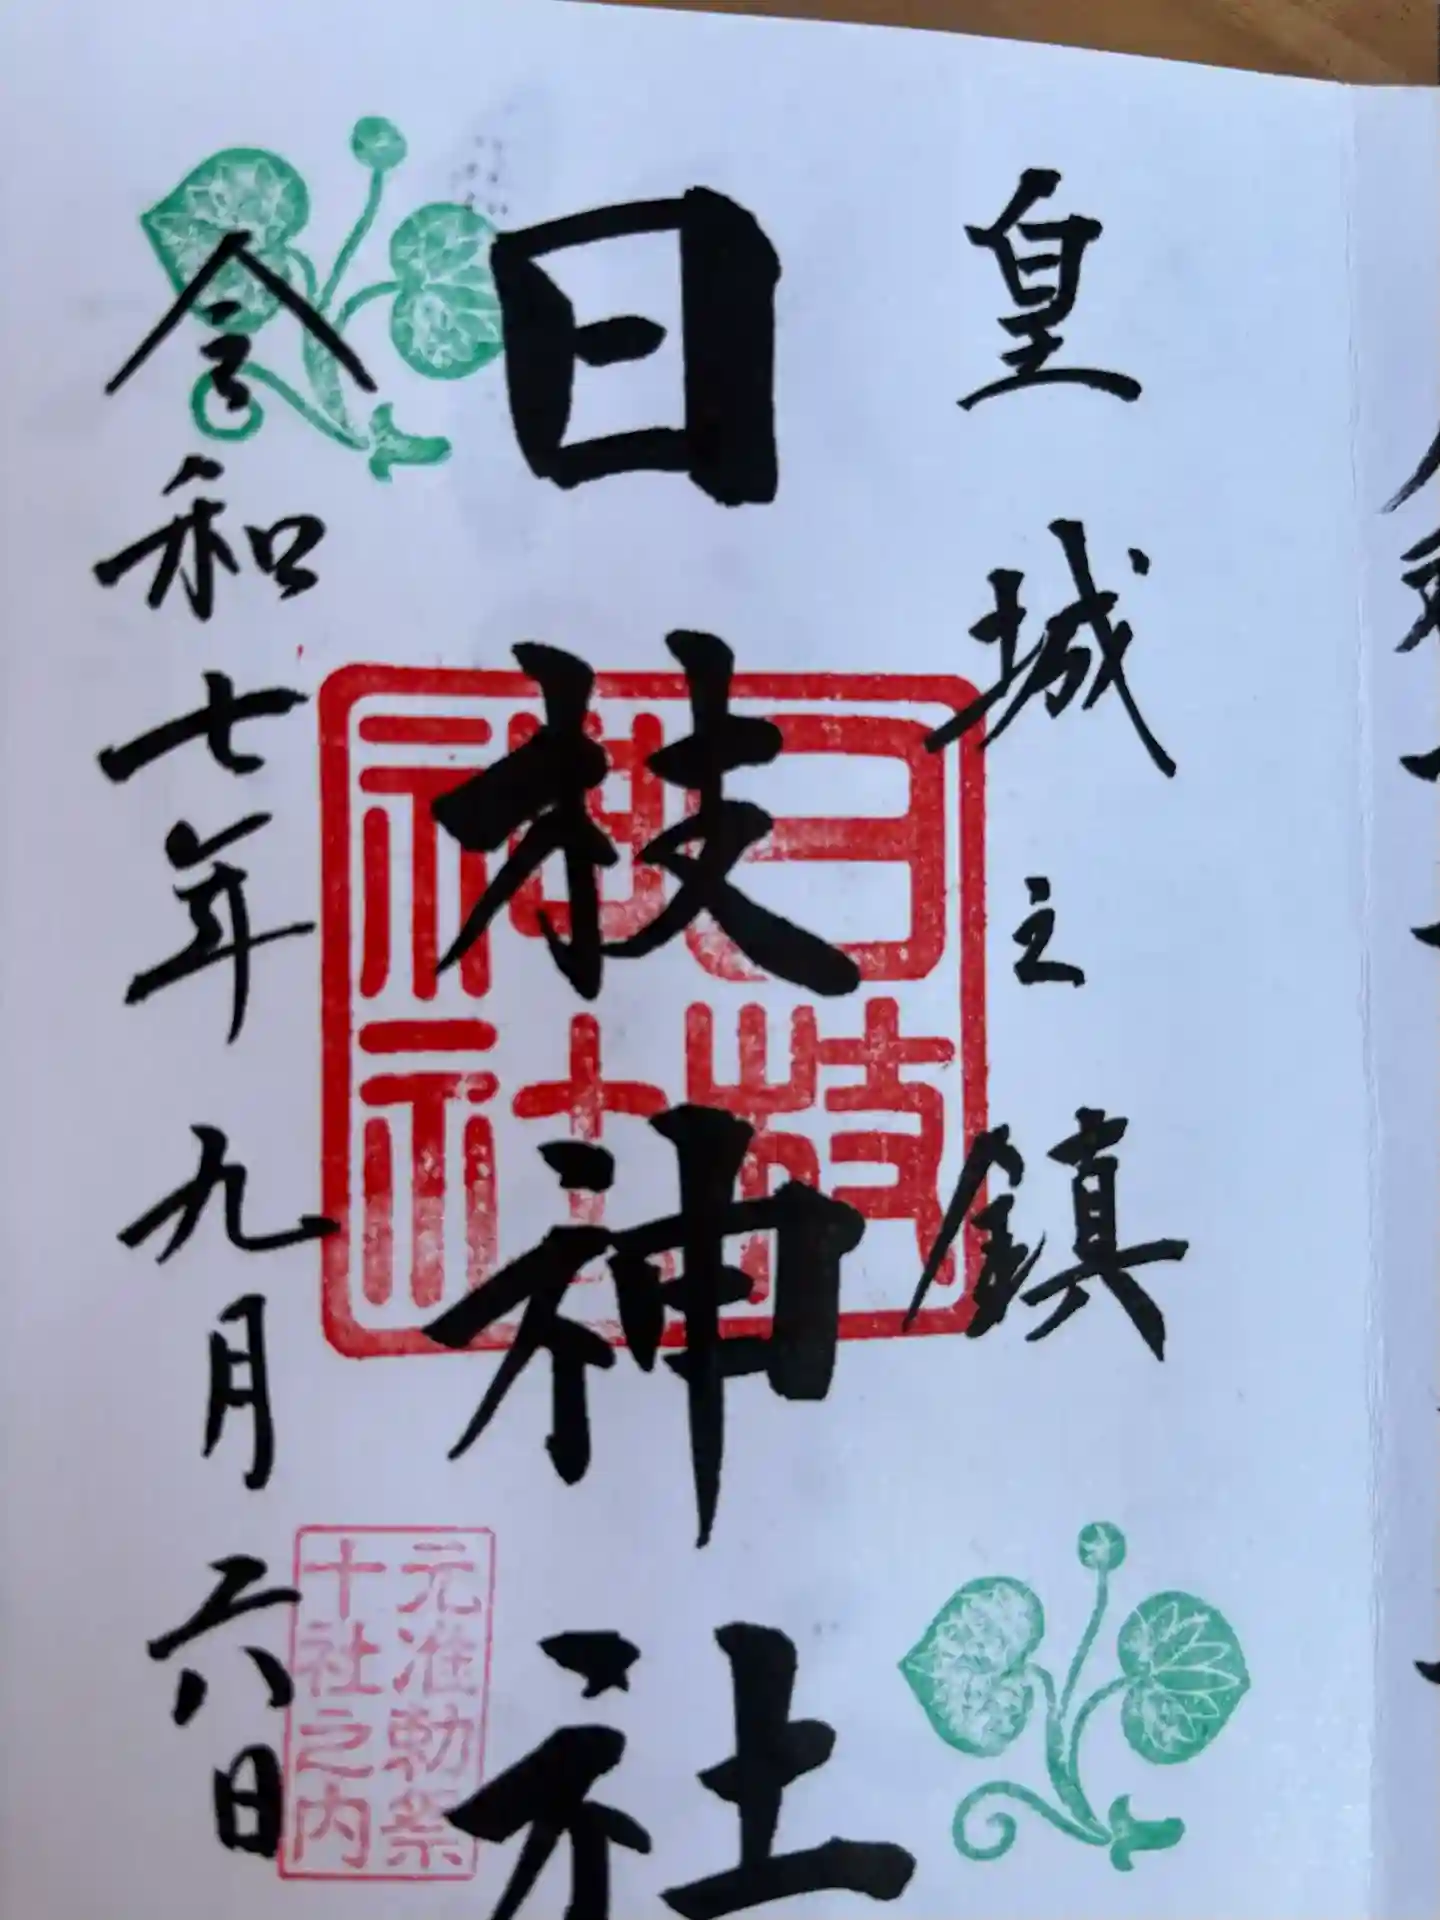 皇城之鎮
日枝神社
日枝神社
令和七年九月六日
元准勅祭
十社之内